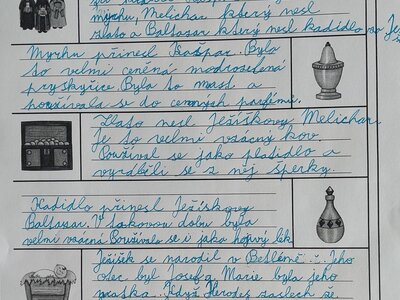 myrhu, Melichar který nesl
zlato a Baltazar který nesl kadidlo
Myrhu přinesl Kašpar. Byla
to velmi ceněná modrozelená
pryskyřice Byla to mast a
používala se do cenných parfémů.
Zlato nesl Ježíškovy Melichar.
Je to velmi vzácný kov
Používal se jako platidlo a
vyráběli se z něj šperky.
Kadidlo přinesl Ježíškovy
Baltazar. V takovou dobu byla
velmi vzácná Používalo se i jako hojivý lék
Ježíšek se narodil v Betlémě. Jeho
otec byl Josef a Marie byla jeho
matka. Když Herodes že